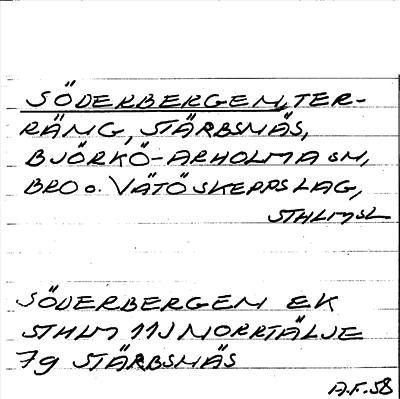 SÖDERBERGEN, TER-
RÄNG, STÄRBSNÄS,
BJÖRKÖ-ARHOLMA SN,
BRO O. VÄTÖ SKEPPSLAG,
STHLMSL
SÖDERBERGEN EK
STHLM 11J NORRTÄLJE
7g STÄRBSNÄS
A.F. 58